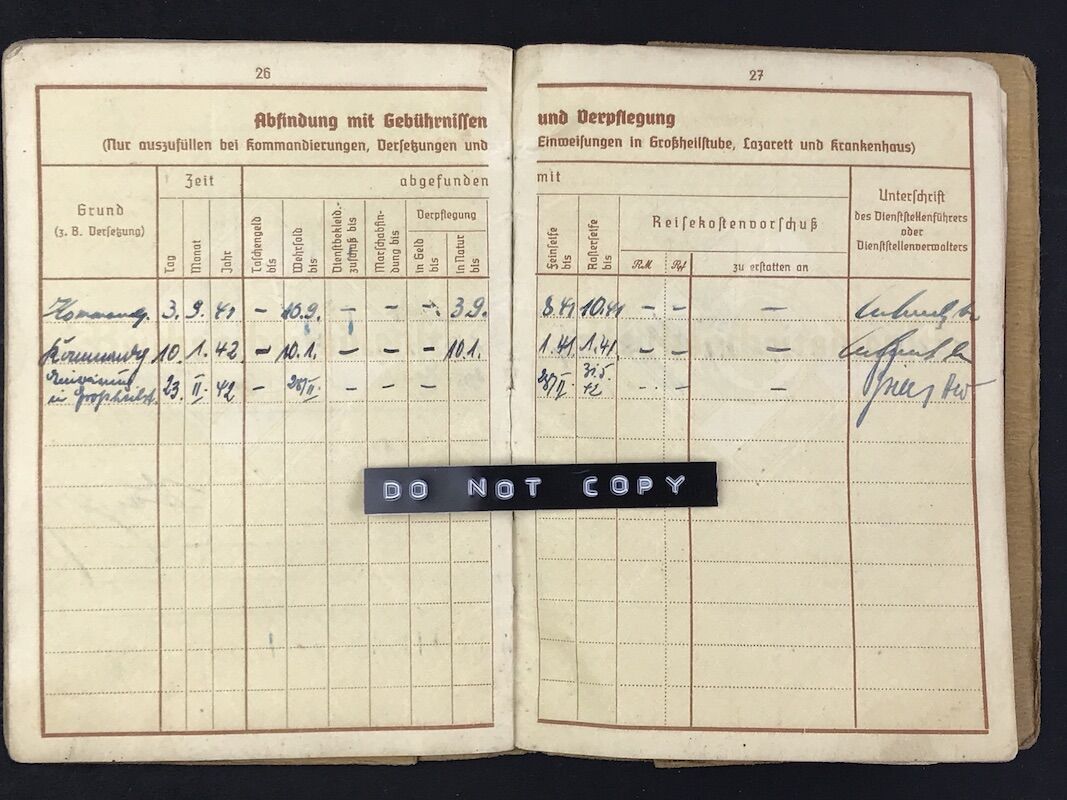 26
27
Abfindung mit Gebührnissen und Verpflegung
(Nur auszufüllen bei Kommandierungen, Versetzungen und Einweisungen in Großheilstube, Lazarett und Krankenhaus)
Grund
(z. B. Versetzung)
Zeit
Tag
Monat
Jahr
abgefunden mit
Taschengeld bis
Wehrsold bis
Dienstbekleid.-zuschuß bis
Marschabfindung bis
Verpflegung
in Geld bis
in Natur bis
Feinseife bis
Rasierseife bis
Reisekostenvorschuß
RM
Rpf
zu erstatten an
Unterschrift
des Dienststellenführers
oder
Dienststellenverwalters
Kommandg. 3. 9. 41 – 10.9. – – – 3.9. 8.41 10.41 – – –
Kommandg 10. 1. 42 – 10.1. – – – 10.1. 1.41 1.41 – – –
Einweisung
in Großheilst. 23. II. 42 – 28/II. – – – 28/II 31.5 42 – – –
DO NOT COPY